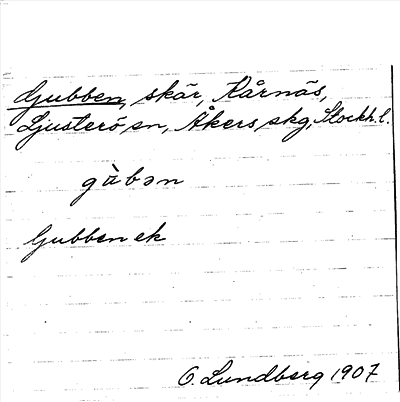 Gubben, skär, Rårnäs,
Ljusterö sn, Åkers skg, Stockh. l.
gàbən
Gubben ek
O. Lundberg 1907